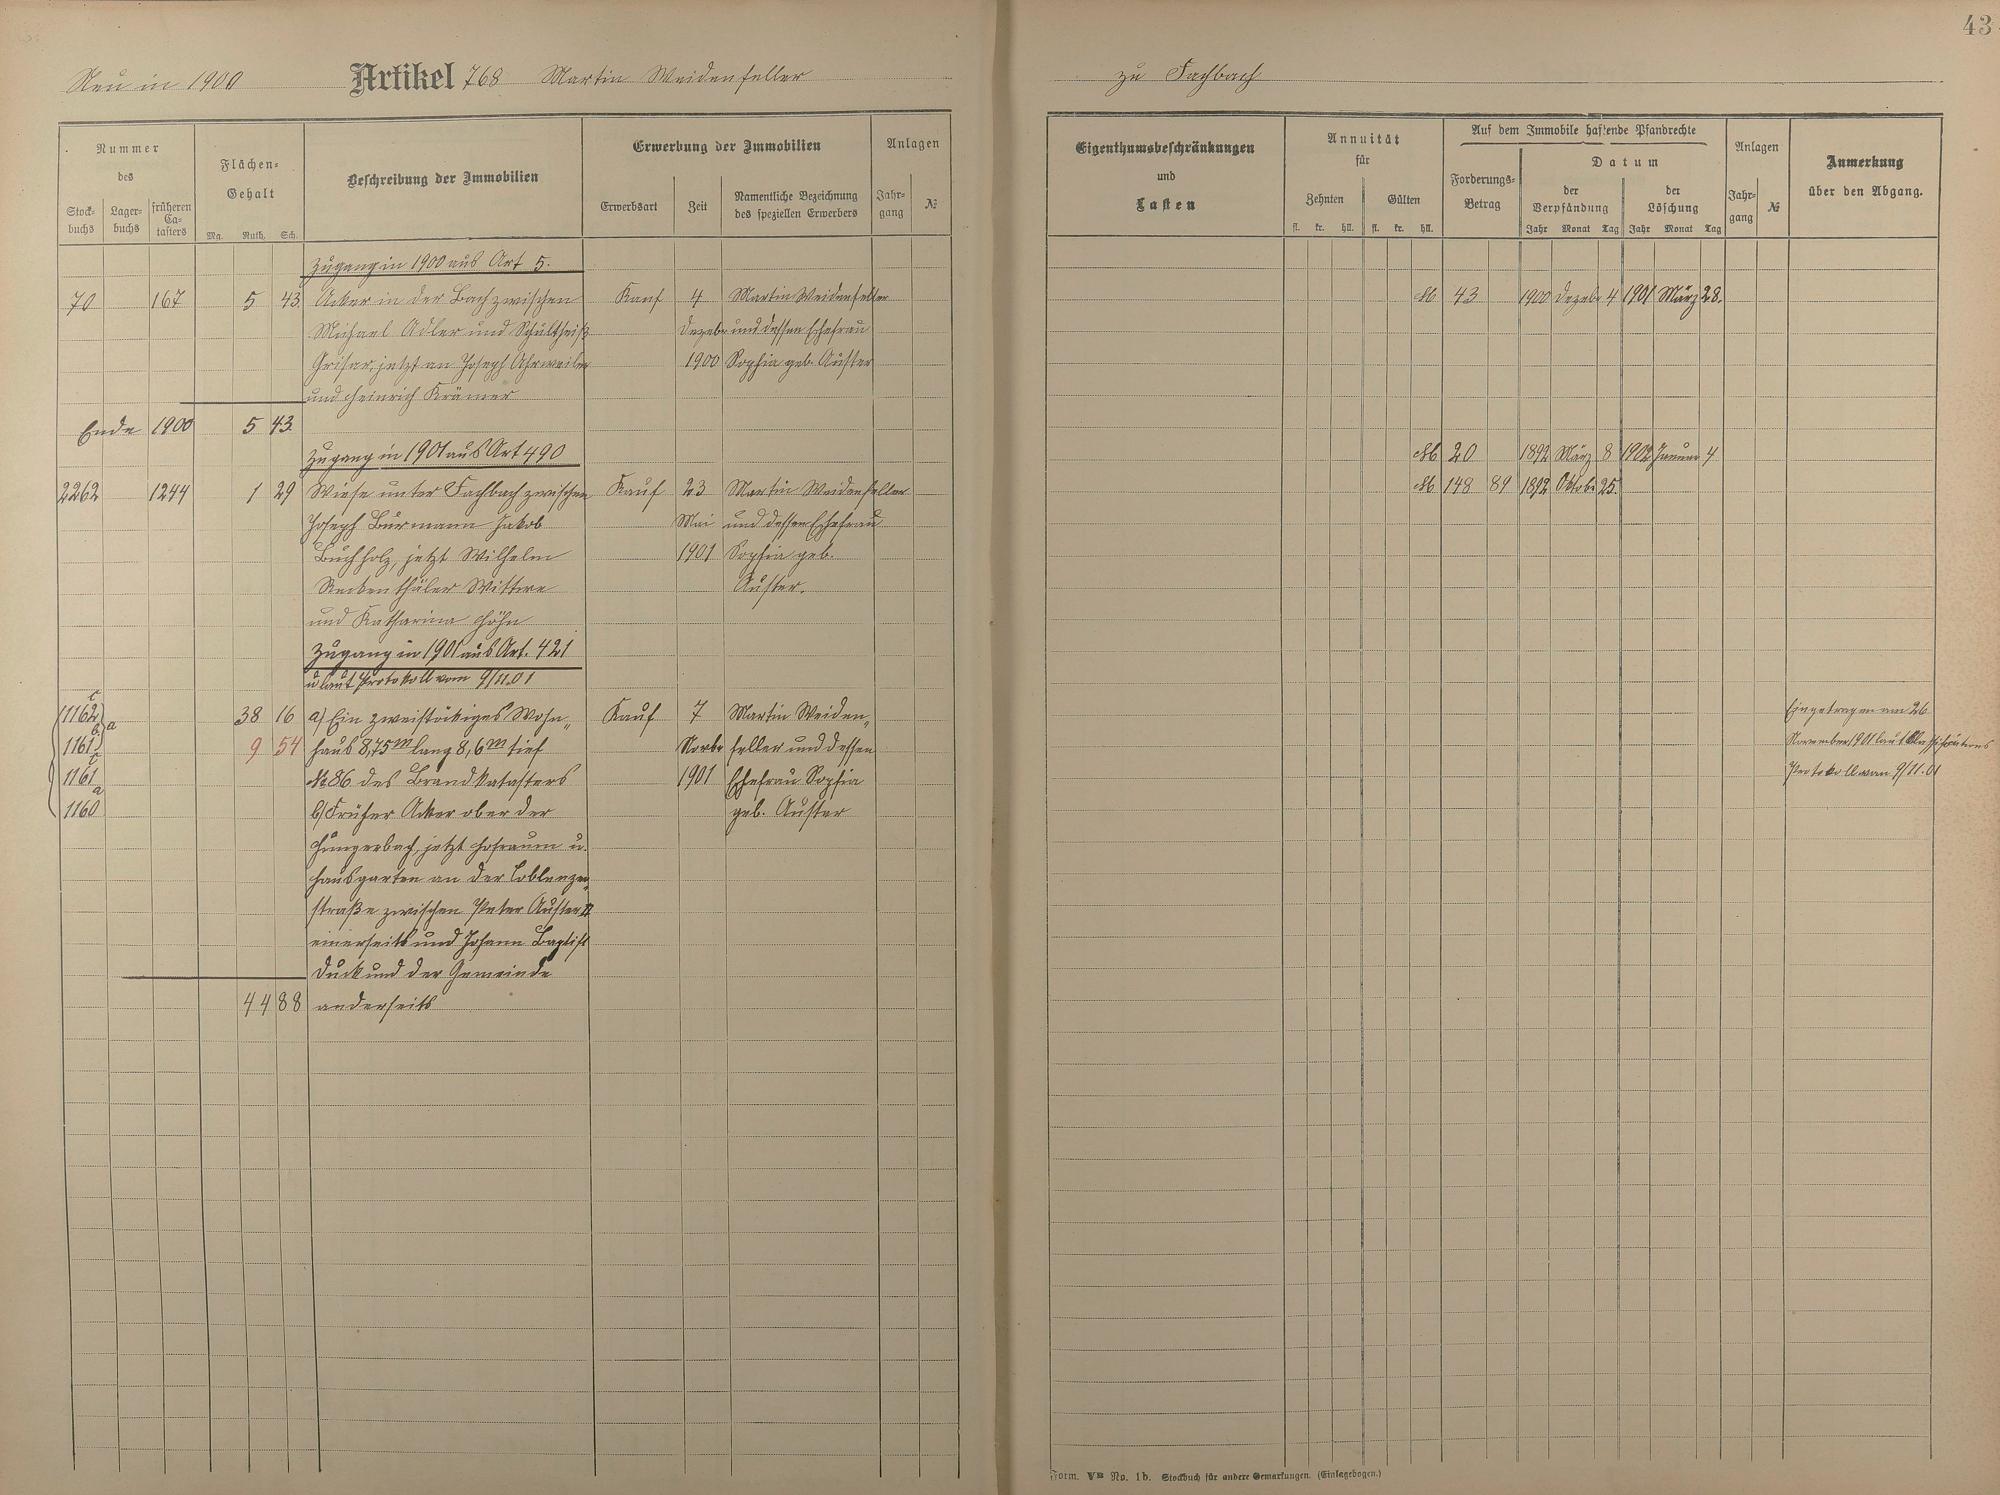 43
Neu in 1900 Artikel 768 Martin Weidenfeller
zu Fachbach
Nummer
des
Stock-
buchs
Lager-
buchs
früheren
Ca-
tasters
Flächen-
Gehalt
Mg. Ruth. Sch.
Beschreibung der Immobilien
Erwerbung der Immobilien
Erwerbsart
Zeit
Namentliche Bezeichnung
des speziellen Erwerbers
Anlagen
Jahr-
gang
№
Eigenthumsbeschränkungen
und
Lasten
Annuität
für
Zehnten
Gülten
fl. kr. hll. fl. kr. hll.
Auf dem Immobile haftende Pfandrechte
Forderungs-
Betrag
Datum
der
Verpfändung
der
Löschung
Jahr Monat Tag Jahr Monat Tag
Anlagen
Jahr-
gang
№
Anmerkung
über den Abgang.
Zugang in 1900 aus Art 5.
70 167 5 43. Acker in der Bach zwischen Kauf 4 Martin Weidenfeller
M 43 1900 Dezebr 4 1901 März 28.
Michael Adler und Schultheiß Dezebr und dessen Ehefrau
Grisar, jetzt an Joseph Ahrweiler 1900 Sophia geb. Auster
und Heinrich Krämer
Ende 1900 5 43.
Zugang in 1901 aus Art 490
M 20 1892 März 8 1902 Januar 4
2262 1244 1 29 Wiese unter Fachbach zwischen Kauf 23 Martin Weidenfeller
M 148 89 1892 Oktobr 25.
Joseph Bürmann Jakob Mai und dessen Ehefrau
Buchholz, jetzt Wilhelm 1901 Sophia geb.
Wittwe Auster.
und Katharina Höhn
Zugang in 1901 aus Art. 421
u. laut Protokoll vom 9/11.01
1162 c a 38 16 a) Ein zweistöckiges Wohn„ Kauf 7 Martin Weiden„
Eingetragen am 26
1161 b 9 54 haus 8,75m lang 8,6m tief Novbr feller und dessen
November 1901 laut
1161 c № 86 des Brandkatasters 1901 Ehefrau Sophia
Protokoll vom 9/11.01
1160 a b) Früher Acker ober der geb. Auster
Hungerbach, jetzt Hofraum u.
Hausgarten an der Coblenzer„
straße zwischen Peter Auster II
einerseits und Johann Baptist
Duck und der Gemeinde
44 88 anderseits
Form. VIII No. 1b. Stockbuch für andere Gemarkungen. (Einlagebogen.)